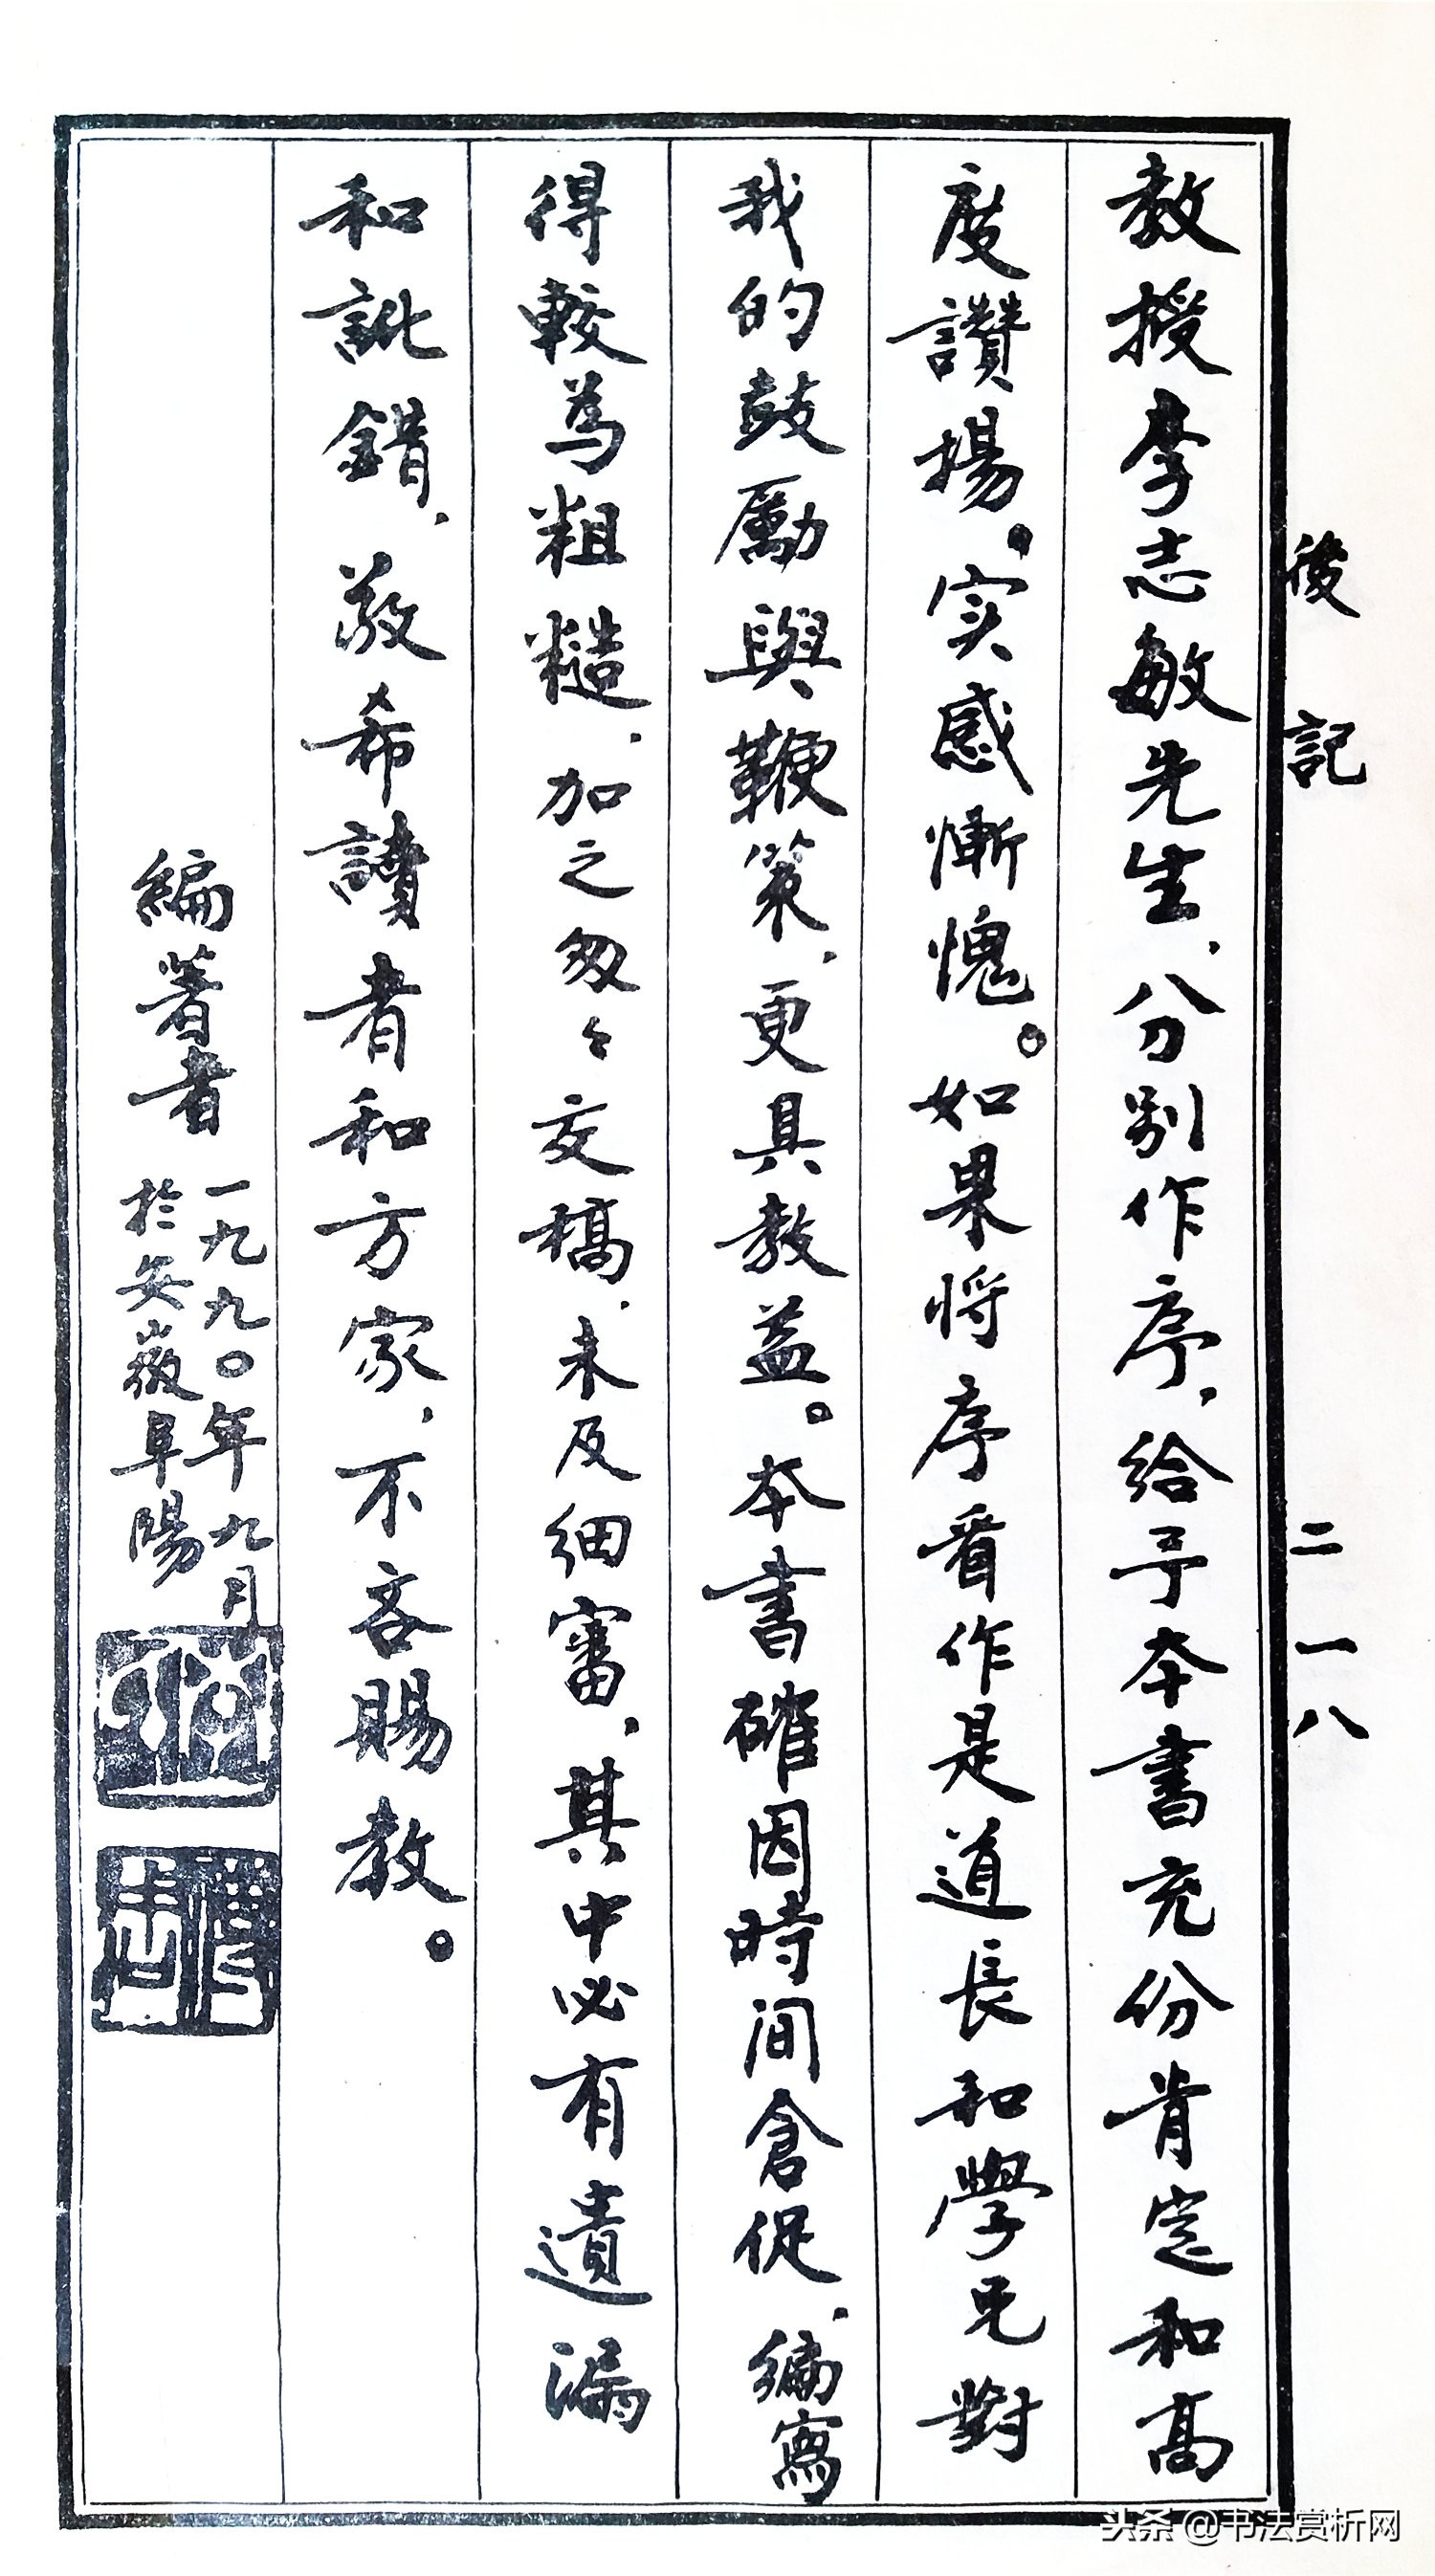 後記
二一八
教授李志敏先生，分别作序，给予本書充份肯定和高
度讚揚。实感慚愧。如果将序看作是道長和學兄對
我的鼓勵與鞭策，更具教益。本書確因時间倉促，编寫
得較为粗糙，加之匆々交稿，未及细審，其中必有遺漏
和訛錯，敬希讀者和方家，不吝賜教。
编著者
一九九〇年九月
於安徽阜陽
头条 @书法赏析网